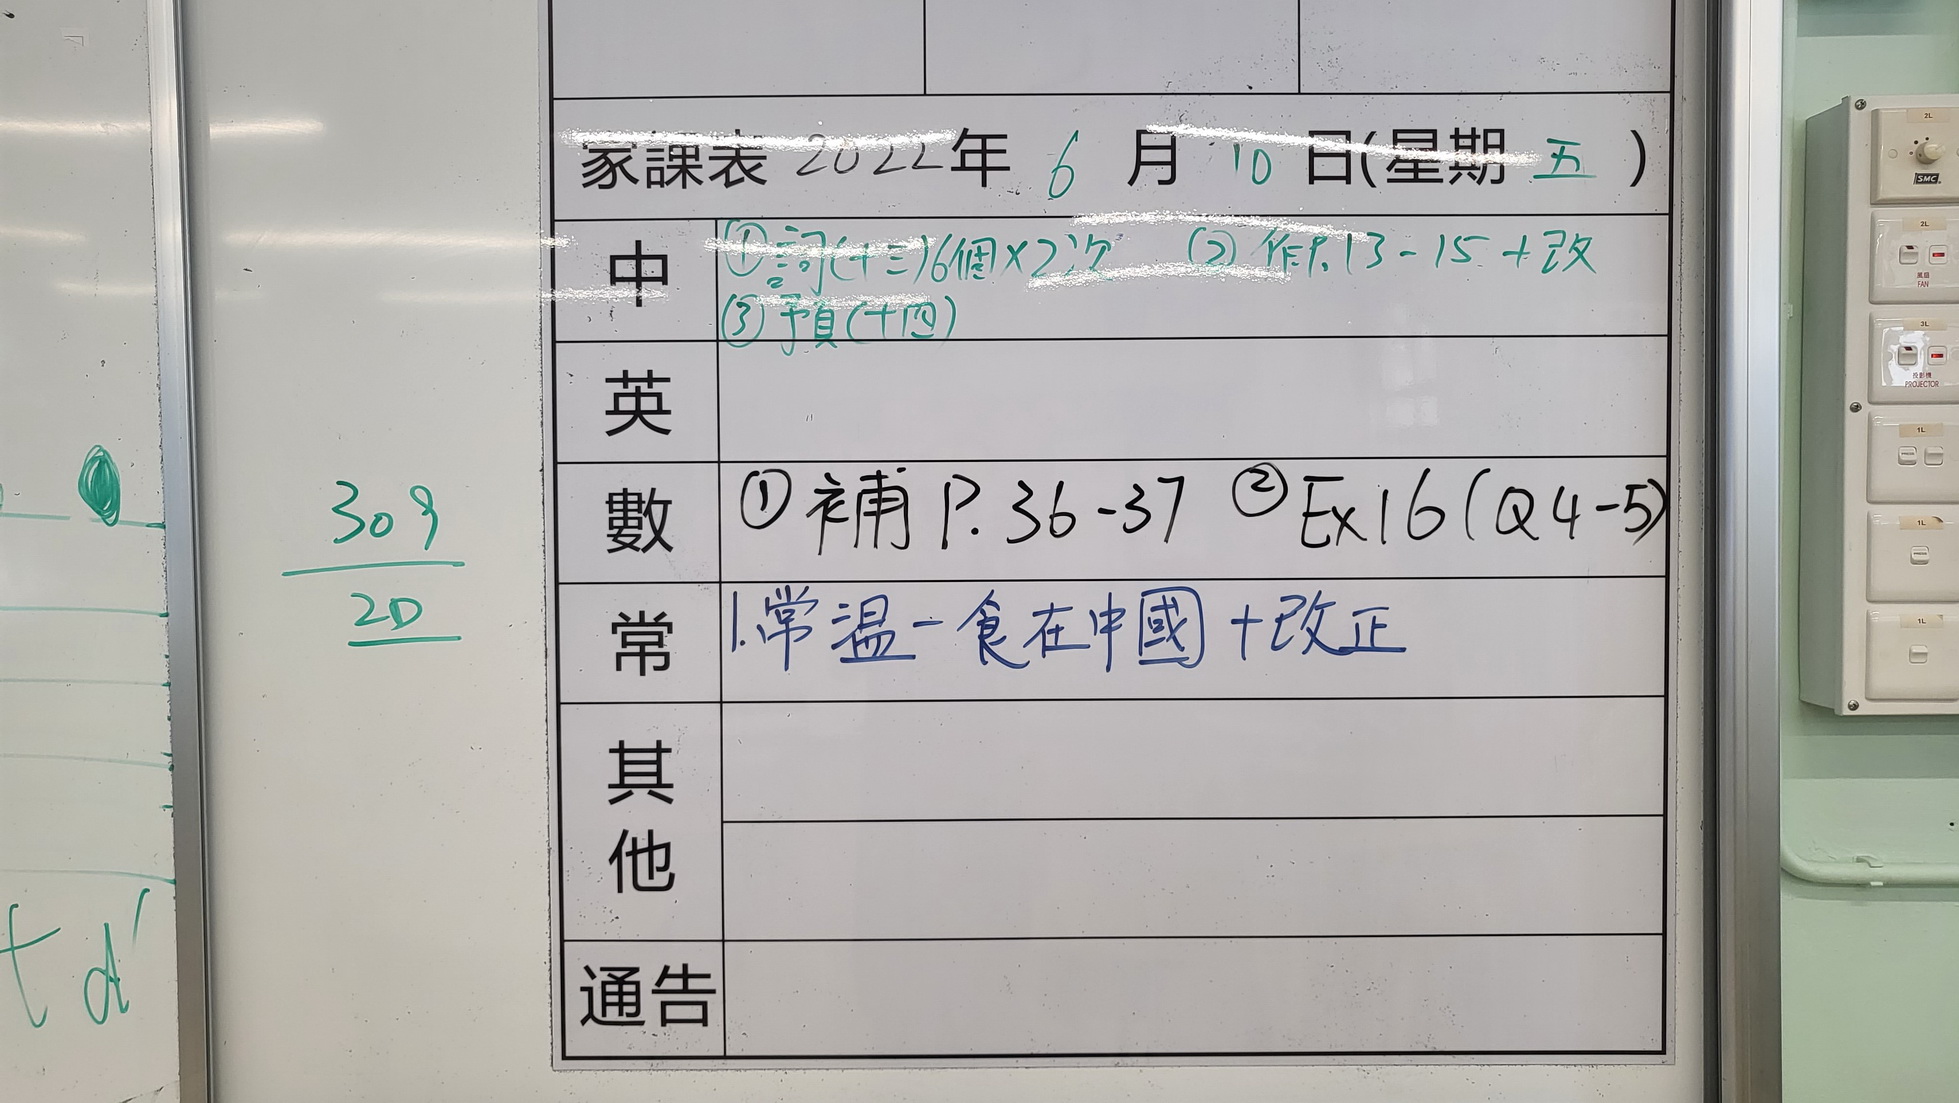 家課表 2022年 6 月 10 日(星期 五 )
中 ①詞(十三)6個×2次 ② 作P.13-15+改
③預(十四)
英
數 ①補 P.36-37 ②Ex16(Q4-5)
常 1.常溫-食在中國+改正
其他
通告
309
20
2L
SMC
2L
風扇
FAN
3L
投影機
PROJECTOR
1L
1L
1L